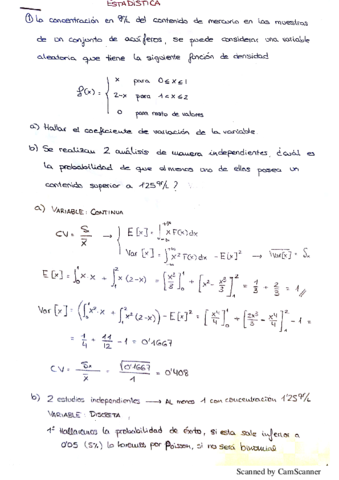 ESTADÍSTICA
① La concentración en g/L del contenido de mercurio en las muestras
de un conjunto de acuíferos, se puede considerar una variable
aleatoria que tiene la siguiente función de densidad
f(x) = { x para 0≤x≤1
2-x para 1<x≤2
0 para resto de valores
a) Hallar el coeficiente de variación de la variable.
b) Se realizan 2 análisis de manera independientes, ¿cuál es
la probabilidad de que al menos uno de ellas posea un
contenido superior a 1'25 g/L?
a) VARIABLE: CONTINUA
CV = S/x̄ → { E[x] = ∫_{-∞}^{+∞} x f(x) dx
Var[x] = ∫_{-∞}^{+∞} x² f(x) dx - E[x]² → √Var[x] = Sₓ
E[x] = ∫₀¹ x·x + ∫₁² x(2-x) = [x³/3]₀¹ + [x² - x³/3]₁² = 1/3 + 2/3 = 1 //
Var[x] = (∫₀¹ x²·x + ∫₁² x²(2-x)) - E[x]² = [x⁴/4]₀¹ + [2x³/3 - x⁴/4]₁² - 1 =
= 1/4 + 11/12 - 1 = 0'1667
CV = Sₓ/x̄ = √(0'1667)/1 = 0'408
b) 2 estudios independientes → AL menos 1 con concentración 1'25 g/L
VARIABLE: DISCRETA
1º Hallaremos la probabilidad de éxito, si esta sale inferior a
0'05 (5%) lo haremos por Poisson, si no será binomial
Scanned by CamScanner